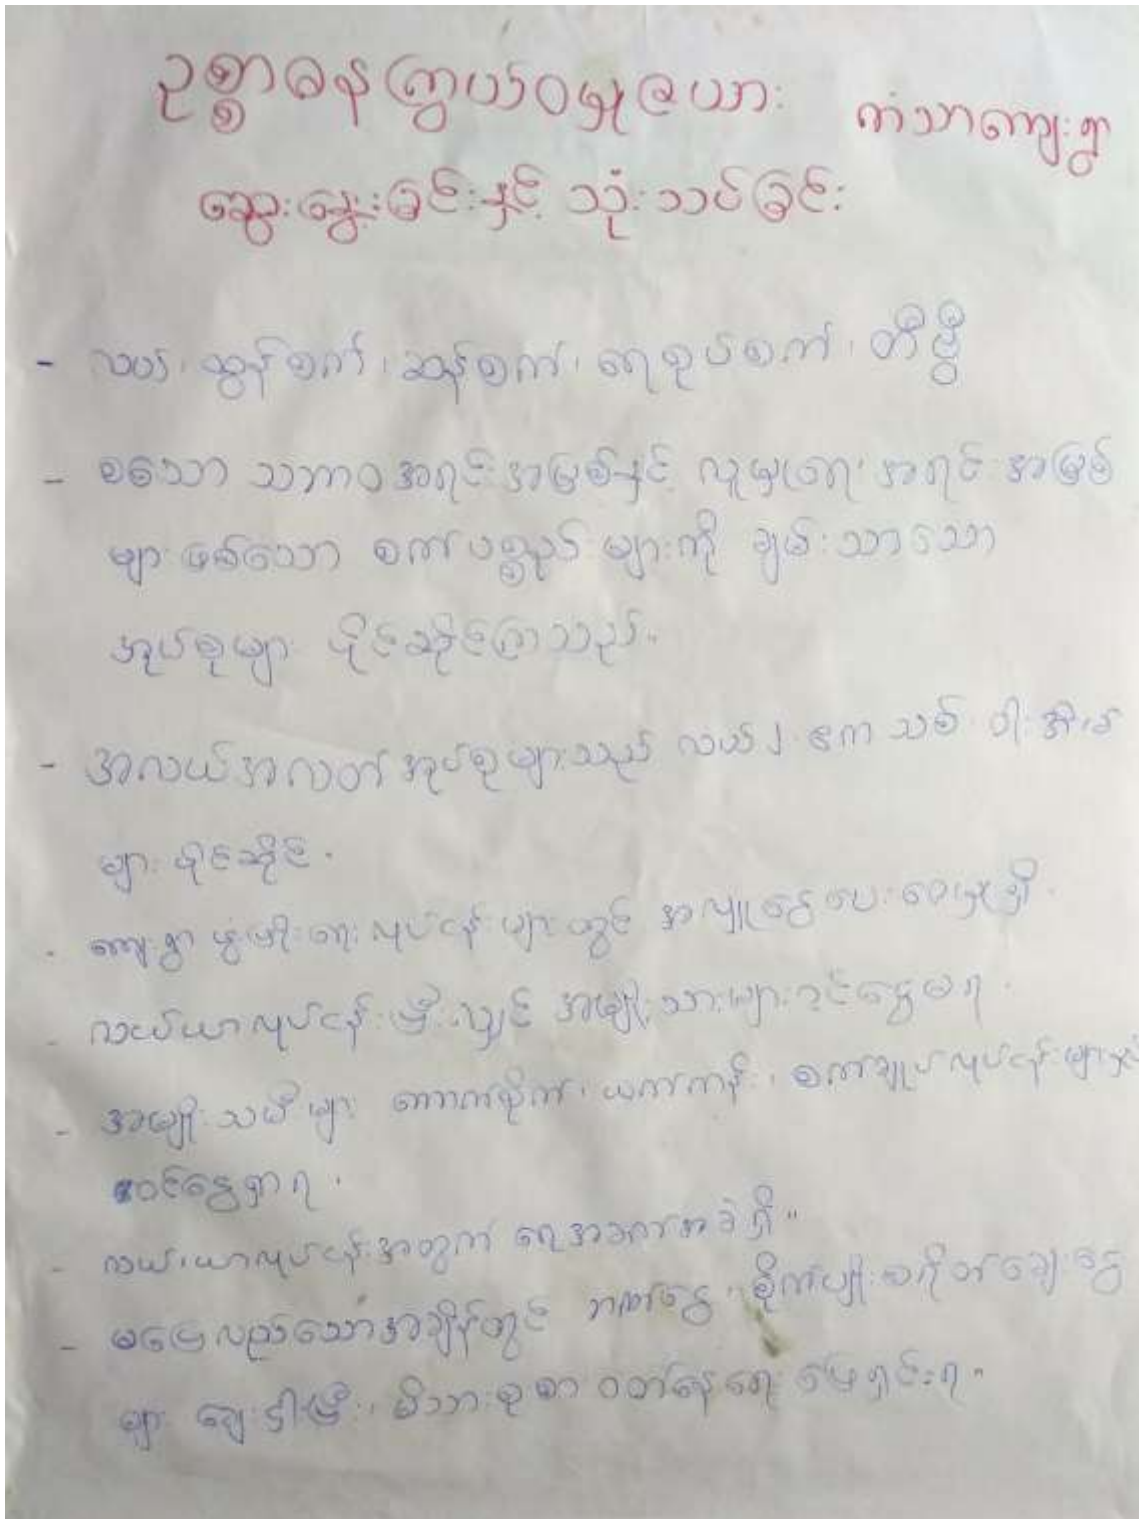 ဥစ္စာဓနကြွယ်ဝမှုဇယား ကံသာကျေးရွာ
ဆွေးနွေးခြင်းနှင့် သုံးသပ်ခြင်း
- လယ်၊ ထွန်စက်၊ ဆန်စက်၊ ရေစုပ်စက်၊ တီဗွီ
- စသော သဘာဝအရင်းအမြစ်နှင့် လူမှုရေး အရင်းအမြစ်
များ ဖစ်သော စက်ပစ္စည်း များကို ချမ်းသာသော
အုပ်စုများ ပိုင်ဆိုင်ကြသည်။
- အလယ်အလတ် အုပ်စုများသည် လယ် ၂ ဧက သစ် ဝါး အိမ်
များ ပိုင်ဆိုင်.
. ကျေးရွာ ဖွံ့ဖြိုးရေး လုပ်ငန်း များ တွင် အလှူငွေ ပေးဝေမှုရှိ.
- လယ်ယာလုပ်ငန်း ပြီးလျှင် အမျိုးသားများ ဝင်ငွေမရ.
- အမျိုးသမီးများ ကောက်စိုက်၊ ယက်ကန်း၊ စက်ချုပ်လုပ်ငန်းများနှင့်
ဝင်ငွေရှာရ.
- လယ်၊ယာလုပ်ငန်းအတွက် ရေအခက်အခဲရှိ။
- မပြေလည်သောအချိန်တွင် ဘဏ်ငွေ၊ စိုက်ပျိုးစရိတ်ချေးငွေ
များ ချေးငှါးပြီး၊ မိသားစု စာ ဝတ်နေရေး ဖြေရှင်းရ။